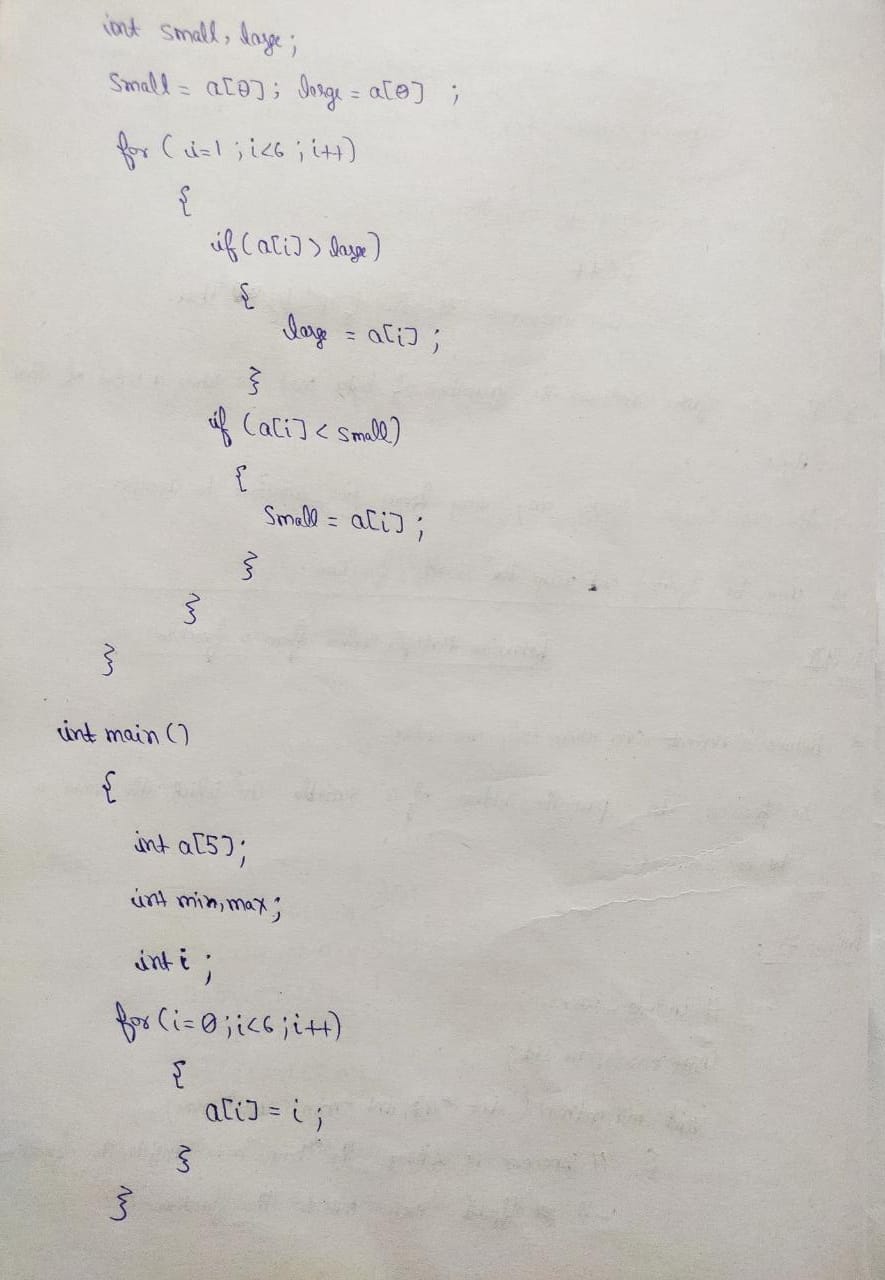 int small, large;
Small = a[0]; large = a[0] ;
for (i=1 ; i<6 ; i++)
{
if (a[i] > large)
{
large = a[i] ;
}
if (a[i] < small)
{
Small = a[i] ;
}
}
}
int main ()
{
int a[5];
int min, max ;
int i ;
for (i=0 ; i<6 ; i++)
{
a[i] = i ;
}
}